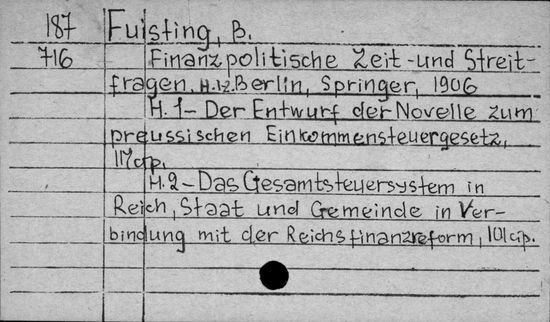 187 Fuisting, B.
716 Finanzpolitische Zeit-und Streit-
fragen, H.1.2. Berlin, Springer, 1906
H. 1 - Der Entwurf der Novelle zum
preussischen Einkommensteuergesetz,
117 c.p.
H. 2 - Das Gesamtsteuersystem in
Reich, Staat und Gemeinde in Ver-
bindung mit der Reichsfinanzreform, 101 c.p.